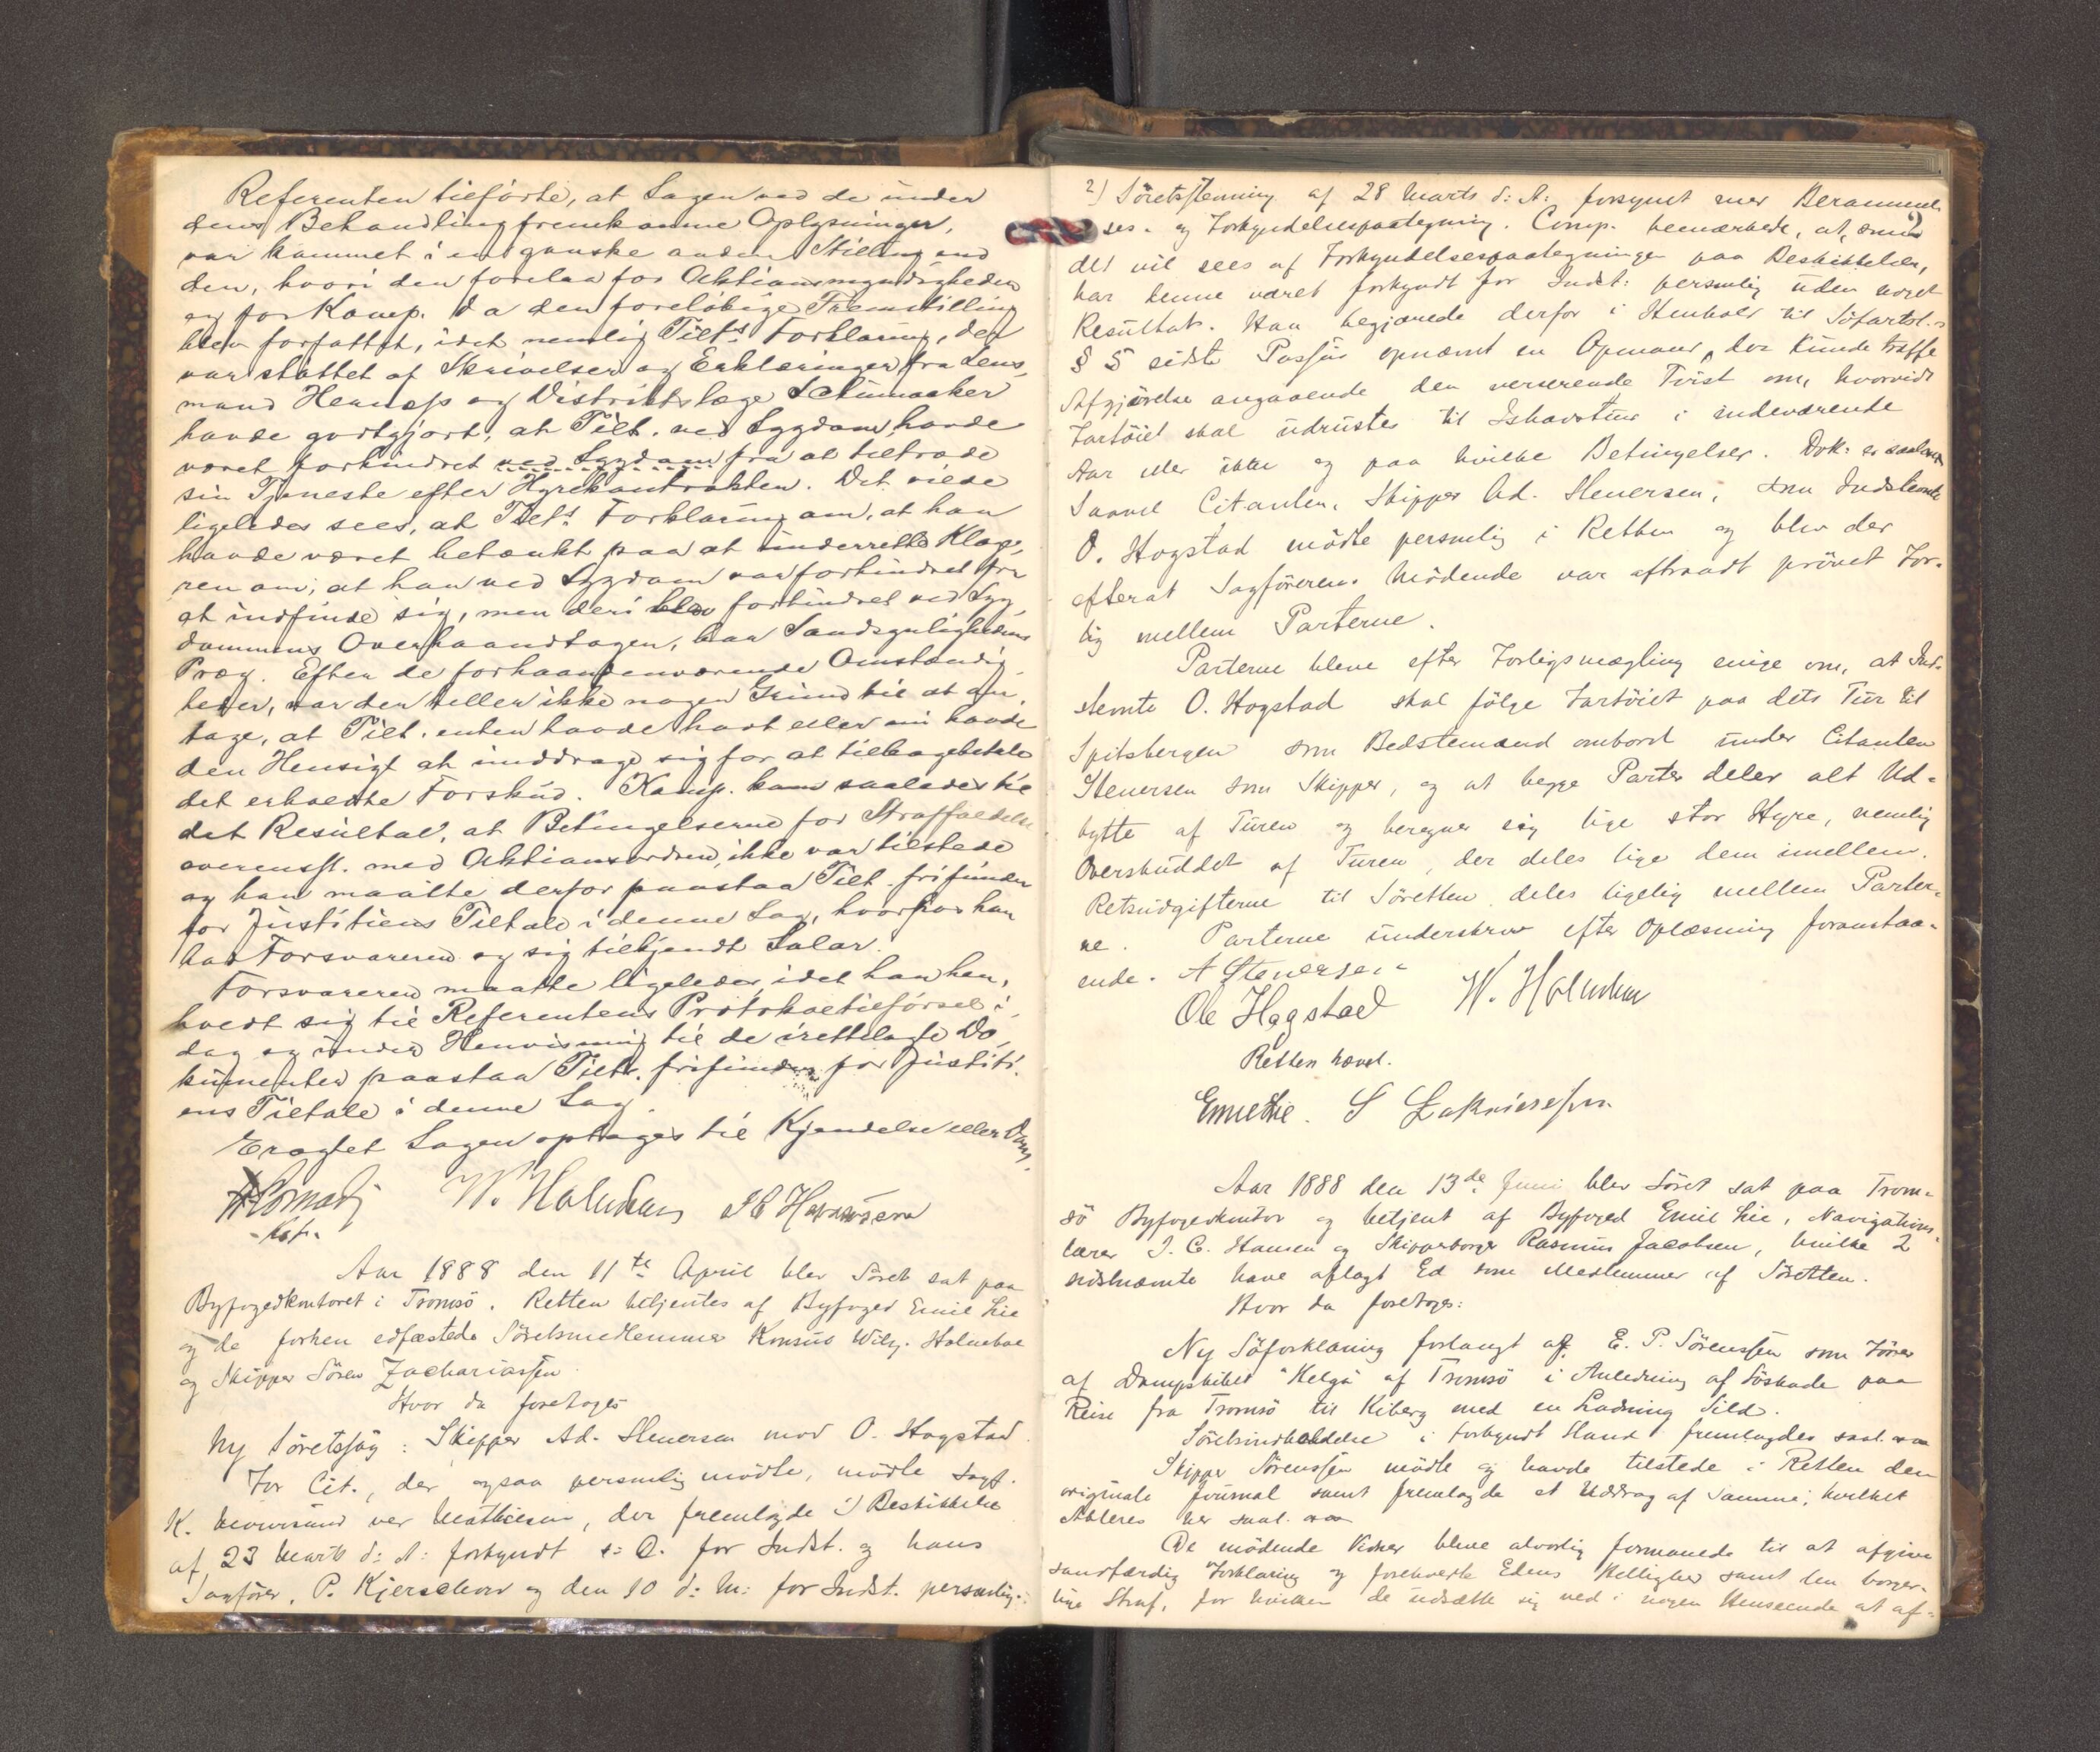 Referenten tilförte, at Sagen ved de under
dens Behandling fremkomne Oplysninger,
var kommet i en ganske anden Stilling end
den, hvori den forelaa for Aktionsmyndigheden
og for Komp. da den foreløbige Fremstilling
blev forfattet, idet nemlig Tilts Forklaring, der
var støttet af Skrivelser og Erklæringer fra Lens-
mand Hennops og Distriktslæge Schumacker
havde godtgjort, at Tilt. ved Sygdom havde
været forhindret ved Sygdom fra at tiltræde
sin Tjeneste efter Hyrekontrakten. Det vilde
ligeledes sees, at Tilts Forklaring om, at han
havde været betænkt paa at underrette Klage-
ren om, at han ved Sygdom var forhindret fra
at indfinde sig, men deri blev forhindret ved Syg-
dommens Overhaandtagen, har Sandsynlighedens
Præg. Efter de forhaandenværende Omstændig-
heder, var der heller ikke nogen Grund til at an-
tage, at Tilt. enten havde havt eller nu havde
den Hensigt at unddrage sig for at tilbagebetale
det erholdte Forskud. Komp. kom saaledes til
det Resultat, at Betingelserne for Straffældelse
overensst. med Aktionsordren, ikke var tilstede
og han maatte derfor paastaa Tilt. frifunden
for Justitiens Tiltale i denne Sag, hvorhos han
bad Forsvareren og sig tilkjendt Salær.
Forsvareren maatte ligeledes, idet han hen-
holdt sig til Referentens Protokoltilførsel i
dag og under Henvisning til de irettelagte Do-
kumenter paastaa Tilt. frifunden for Justiti-
ens Tiltale i denne Sag.
Eragtet Sagen optages til Kjendelse eller Dom.
W. Holmboe
Kst.
Aar 1888 den 11te April blev Söret sat paa
Byfogedkontoret i Tromsö. Retten betjentes af Byfoged Emil Lie
og de forhen edfæstede Söretsmedlemmer Konsul Wilh. Holmboe
og Skipper Sören Zachariassen
Hvor da foretoges
Ny Söretssag: Skipper Ad. Stenersen mod O. Hogstad
For Cit., der ogsaa personlig mödte, mödte Sagf.
K. ved Mathiesen, der fremlagde 1) Beskikkelse
af 23 Marts d: A: forkyndt s: D. for Indst. og hans
Sagförer, P. Kjerschow og den 10 d: M: for Indst. personlig.
2) Söretsstevning af 28 Marts d: A: forsynet med Berammel-
ses- og Forkyndelsespaategning. Comp. bemærkede, at, som
det vil sees af Forkyndelsespaategningen paa Beskikkelsen,
har denne været forkyndt for Indst: personlig uden noget
Resultat. Han begjærede derfor i Henhold til Söfartsl.s
§ 5 sidste Passus opnævnt en Opmand, der kunde træffe
Afgjörelse angaaende den verserende Tvist om, hvorvidt
Fartöiet skal udrustes til Ishavstur i indeværende
Aar eller ikke og paa hvilke Betingelser. Dok: er saalam
Saavel Citanten, Skipper Ad. Stenersen, som Indstevnte
O. Hogstad mödte personlig i Retten og blev der
efterat Sagförerne. Mödende var aftraadt prövet For-
lig mellem Parterne.
Parterne bleve efter Forligsmægling enige om, at Ind-
stevnte O. Hogstad skal fölge Fartöiet paa dets Tur til
Spitsbergen som Bedstemand ombord under Citanten
Stenersen som Skipper, og at begge Parter deler alt Ud-
bytte af Turen og beregner sig lige stor Hyre, nemlig
Overskuddet af Turen, der deles lige dem imellem.
Retsudgifterne til Söretten deles ligelig mellem Parter-
ne. Parterne underskrev efter Oplæsning foranstaa-
ende. A Stenersen
Ole Hogstad W. Holmboe
Retten hævet.
Emil Lie. S Zakariassen.
Aar 1888 den 13de Juni blev Söret sat paa Trom-
sö Byfogedkontor og betjent af Byfoged Emil Lie, Navigations-
lærer J. C. Hansen og Skipperborger Rasmus Jacobsen, hvilke 2
sidstnævnte have aflagt Ed som Medlemmer af Söretten.
Hvor da foretoges:
Ny Söforklaring forlangt af E. P. Sörenssen som Förer
af Dampskibet "Helga" af Tromsö i Anledning af Söskade paa
Reise fra Tromsö til Kiberg med en Ladning Sild.
Söretsindkaldelse i forkyndt Stand fremlagdes saal.
Skipper Sörenssen mödte og havde tilstede i Retten den
originale Journal samt fremlagde et Uddrag af Samme, hvilket
Akteres her saal.
De mödende Vidner bleve alvorlig formanede til at afgive
sandfærdig Forklaring og foreholdt Edens Hellighed samt den borger-
lige Straf, for hvilken de udsætte sig ved i nogen Henseende at af-